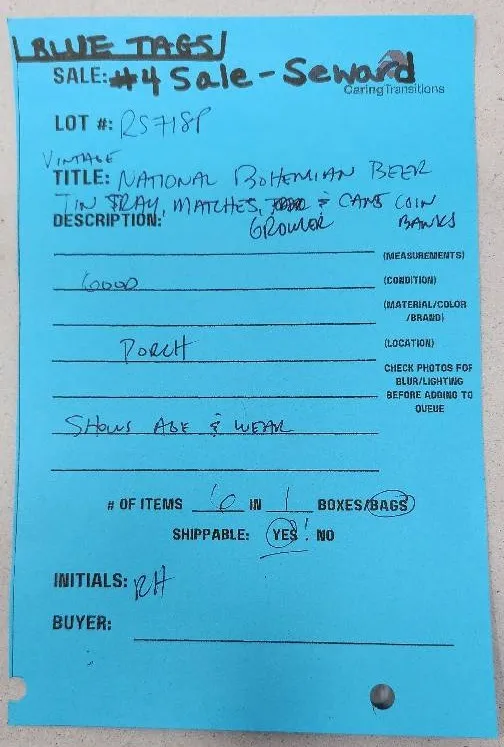 BLUE TAGS
SALE: #4 Sale - Seward
CaringTransitions
LOT #: RS718P
VINTAGE
TITLE: NATIONAL BOHEMIAN BEER
TIN TRAY, MATCHES, & CANS COIN
DESCRIPTION: GROWLER BANKS
(MEASUREMENTS)
GOOD (CONDITION)
(MATERIAL/COLOR
/BRAND)
PORCH (LOCATION)
CHECK PHOTOS FOR
BLUR/LIGHTING
BEFORE ADDING TO
QUEUE
SHOWS AGE & WEAR
# OF ITEMS IN 1 BOXES/BAGS
SHIPPABLE: YES NO
INITIALS: RH
BUYER: